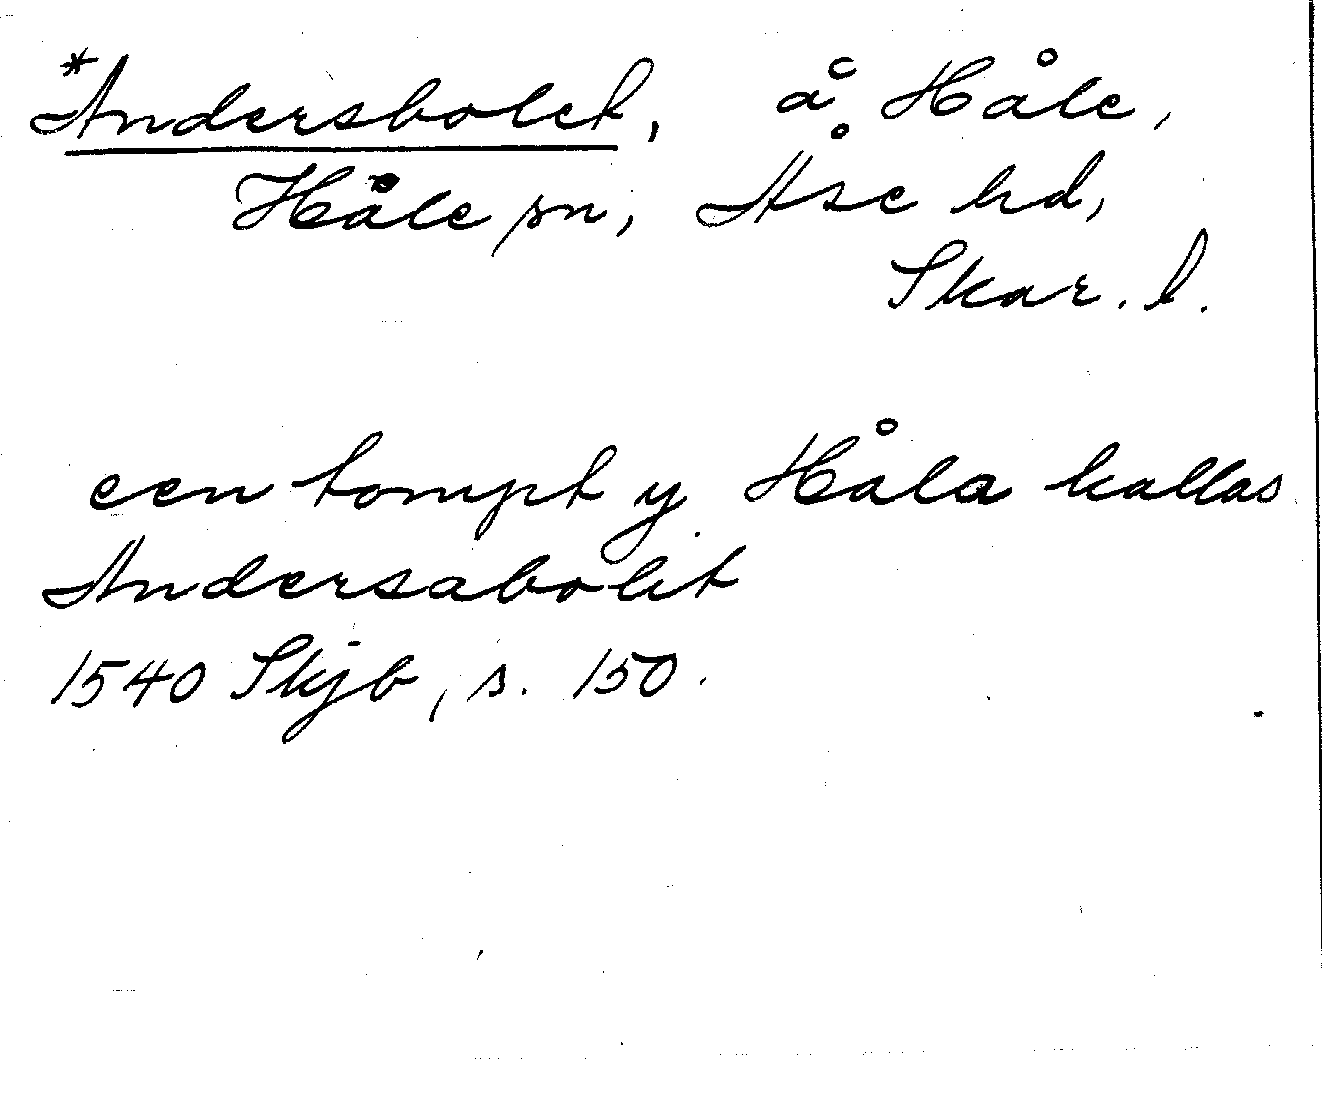 *Andersbolet, å Håle,
Håle sn, Åse hd,
Skar. l.
een tompt y Håla kallas
Andersabolit
1540 Skjb, s. 150.